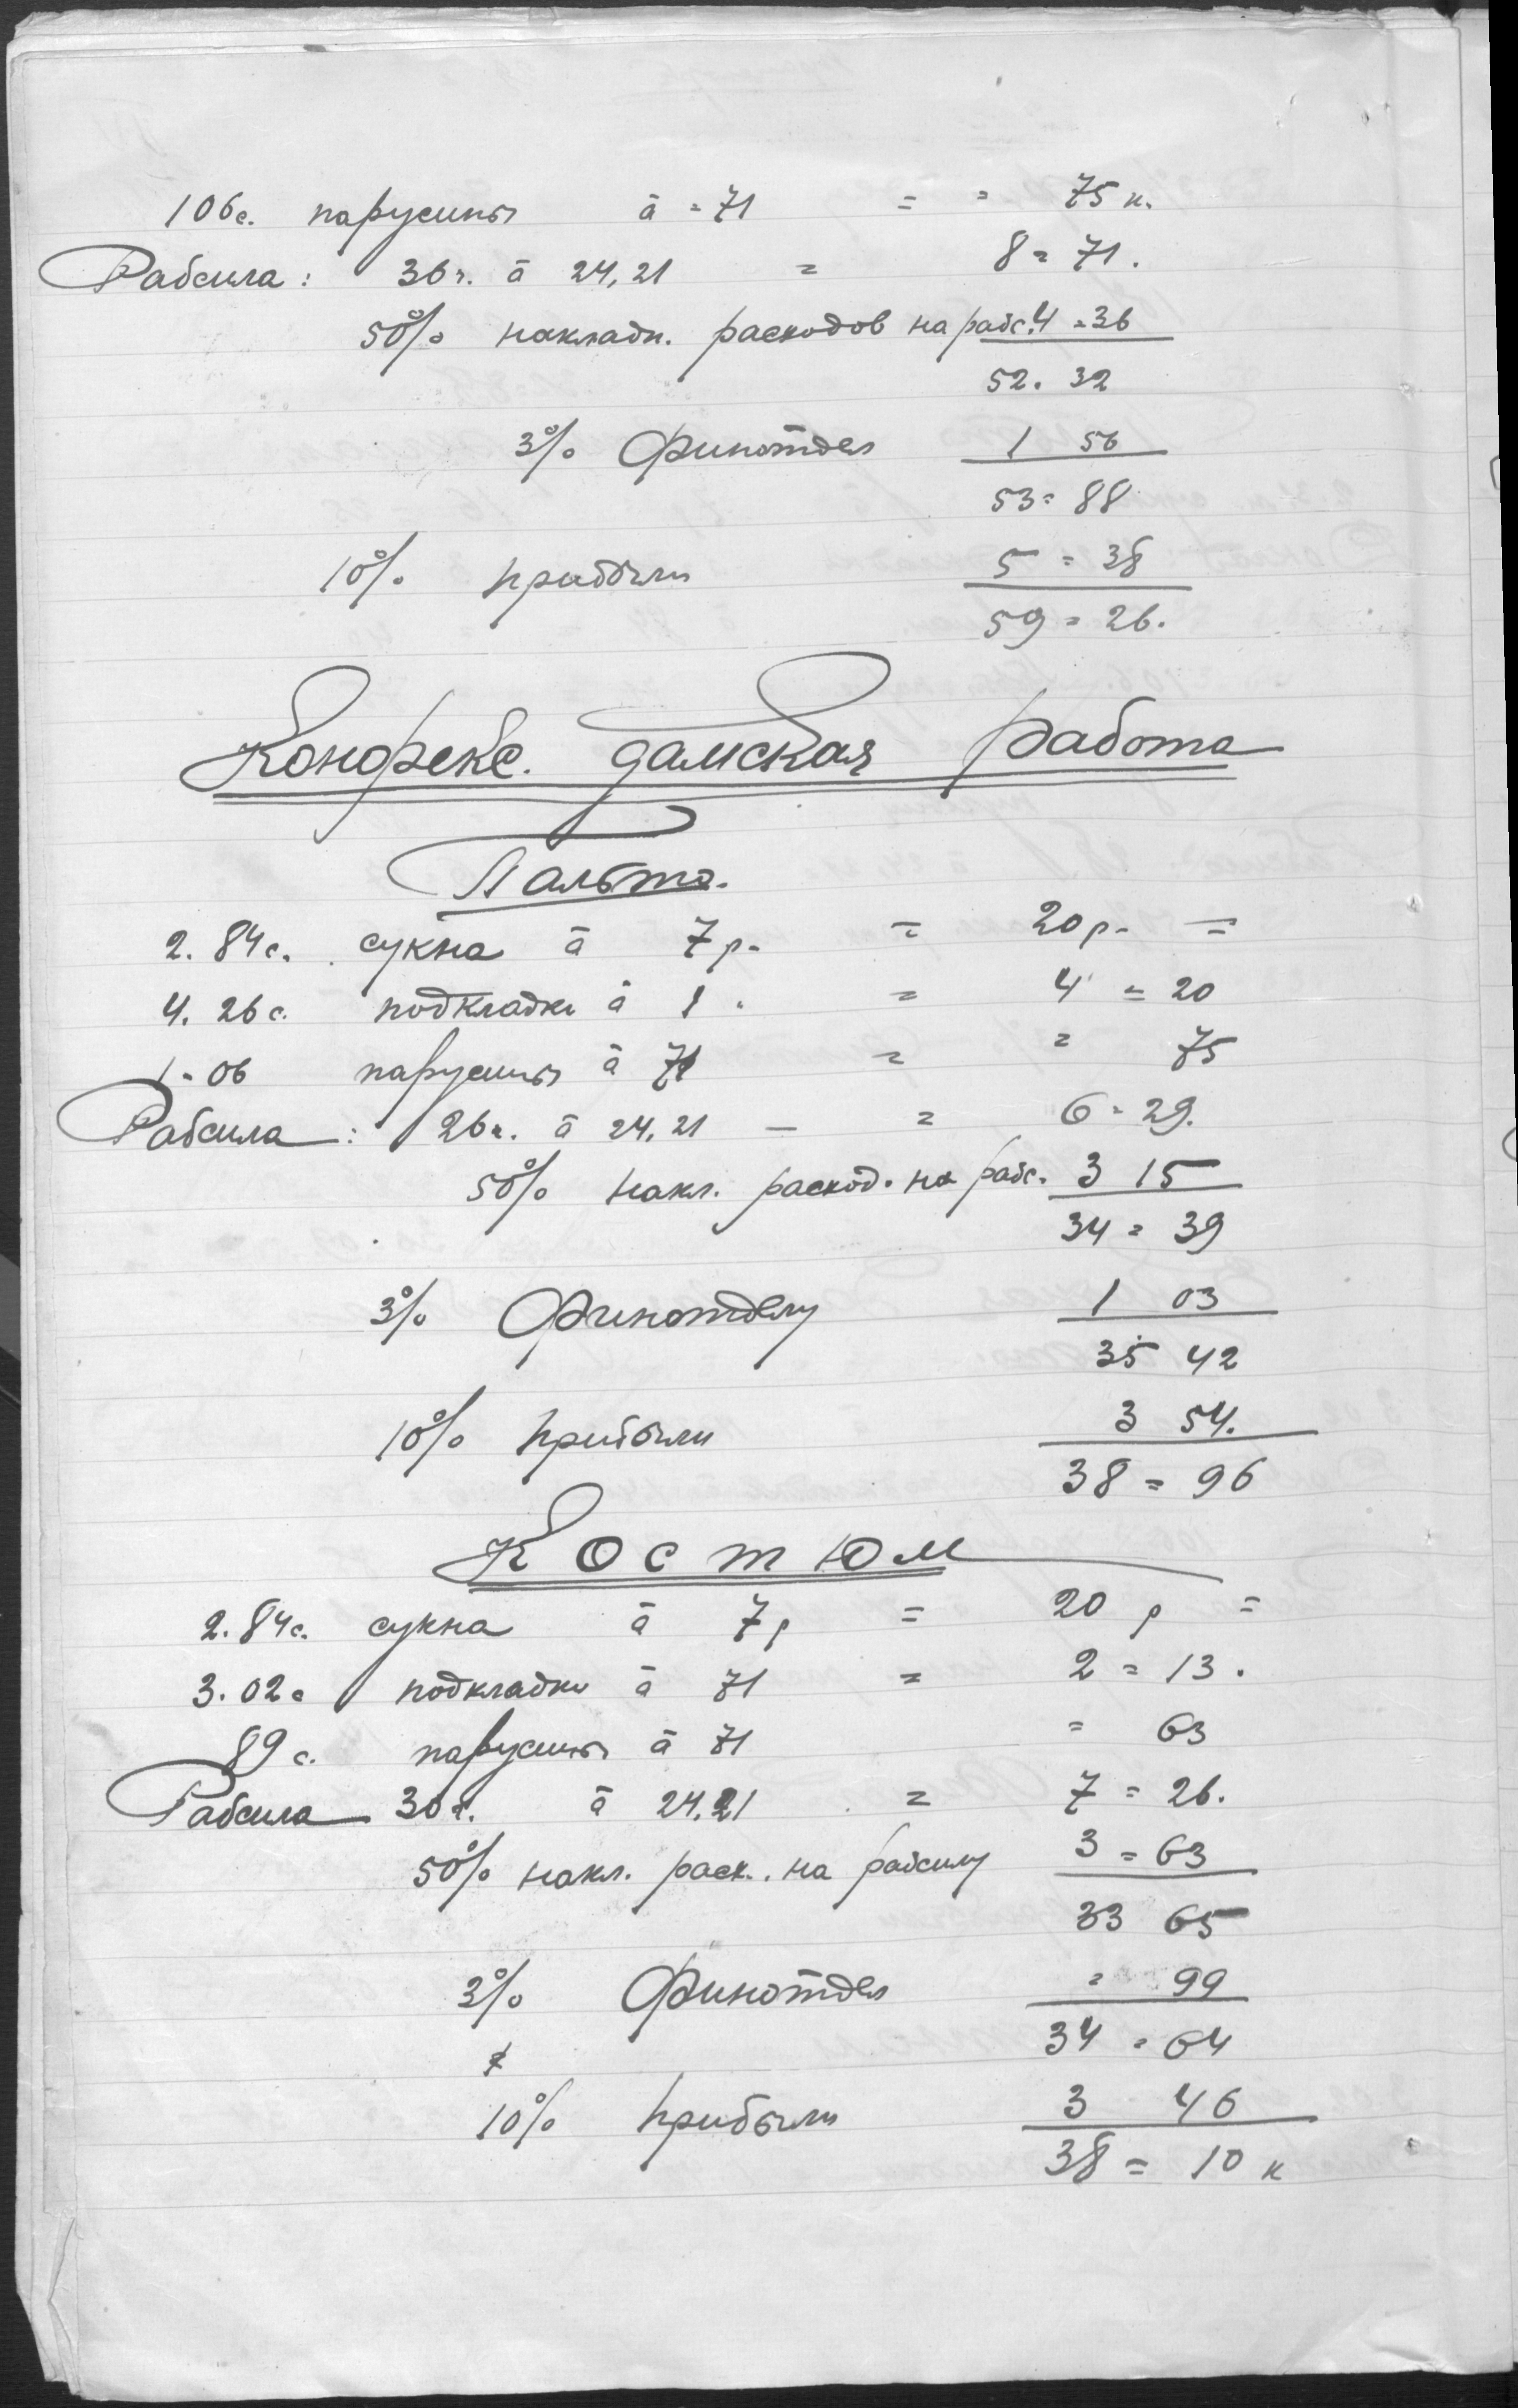 106с. парусины à = 71 = = 75 к.
Рабсила: 36ч. à 24,21 = 8 = 71.
50% накладн. расходов на рабс. 4 = 36
52. 32
3% Финотдел 1 56
53 = 88
10% прибыли 5 = 38
59 = 26.
Конфекс. дамская работа
Пальто.
2. 84с. сукна à 7р. = 20р. =
4. 26с. подкладки à 1. = 4 = 20
1 - 06 парусины à 71 = = 75
Рабсила: 26ч. à 24,21 — = 6 = 29.
50% накл. расход. на рабс. 3 15
34 = 39
3% Финотделу 1 03
35 42
10% прибыли 3 54.
38 = 96
Костюм
2. 84с. сукна à 7р = 20 р =
3. 02с подкладки à 71 = 2 = 13.
89с. парусины à 71 = 63
Рабсила 30ч. à 24,21 = 7 = 26.
50% накл. расх. на рабсилу 3 = 63
33 65
3% Финотдел = 99
34 = 64
10% прибыли 3 46
38 = 10 к